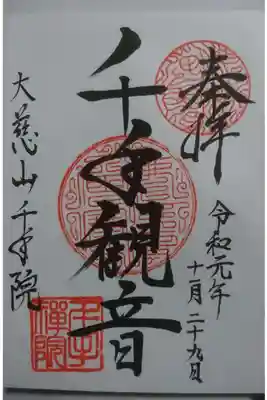 奉拝
令和元年
十一月二十九日
千手観音
大慈山千手院
千手禅院